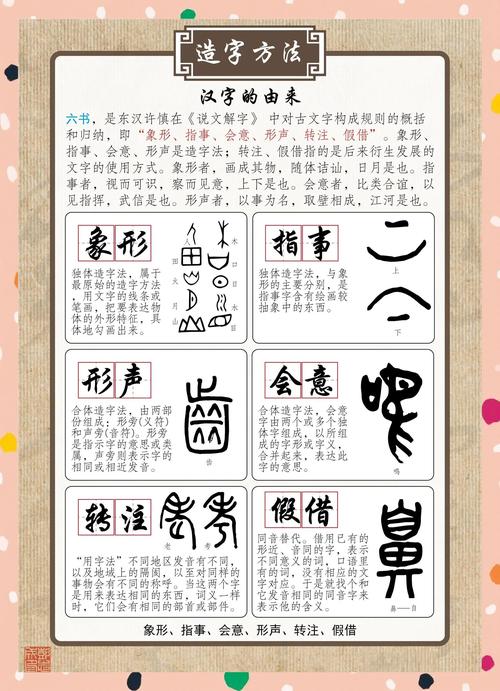 造字方法
汉字的由来
六书，是东汉许慎在《说文解字》中对古文字构成规则的概括
和归纳，即“象形、指事、会意、形声、转注、假借”。象形、
指事、会意、形声是造字法；转注、假借指的是后来衍生发展的
文字的使用方式。象形者，画成其物，随体诘诎，日月是也。指
事者，视而可识，察而见意，上下是也。会意者，比类合谊，以
见指挥，武信是也。形声者，以事为名，取壁相成，江河是也。
象形
独体造字法，属于
最原始的造字方法
，用文字的线条或
笔画，把要表达物体
的外形特征，具
体地勾画出来。
人
田
火
月
山
木
口
目
日
水
指事
独体造字法，与象
形的主要分别，是
指事字含有绘画较
抽象中的东西。
上
下
形声
合体造字法，由两部
份组成：形旁(义符)
和声旁(音符)。形旁
是指示字的意思或类
属，声旁则表示字的
相同或相近发音。
齿
会意
合体造字法，会意
字由两个或多个独
体字组成，以所组
成的字形或字义，
合并起来，表达此
字的意思。
鸣
转注
“用字法”不同地区发音有不同，
以及地域上的隔阂，以至对同样的
事物会有不同的称呼。当这两个字
是用来表达相同的东西，词义一样
时，它们会有相同的部首或部件。
老
考
假借
同音替代。借用已有的
形近、音同的字，表示
不同意义的词，口语里
有的词，没有相应的文
字对应。于是就找个和
它发音相同的同音字来
表示他的含义。
鼻——自
象形、指事、会意、形声、转注、假借